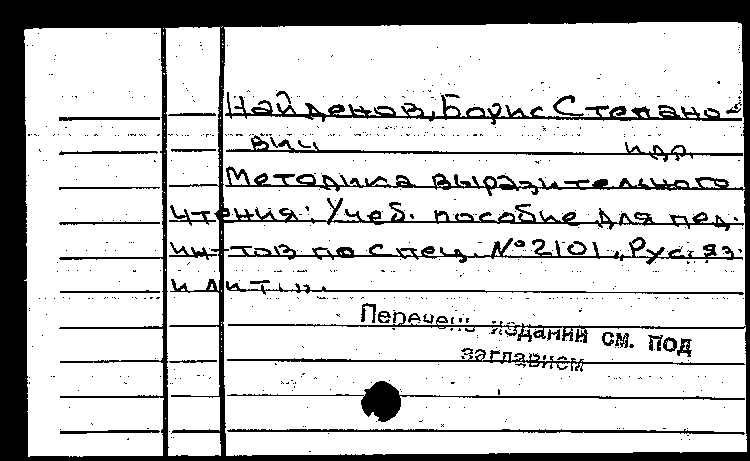 Найденов, Борис Степано-
вич и др.
Методика выразительного
чтения: Учеб. пособие для пед.
ин-тов по спец. №2101 „Рус. яз.
и лит.".
Перечень изданий см. под
заглавием